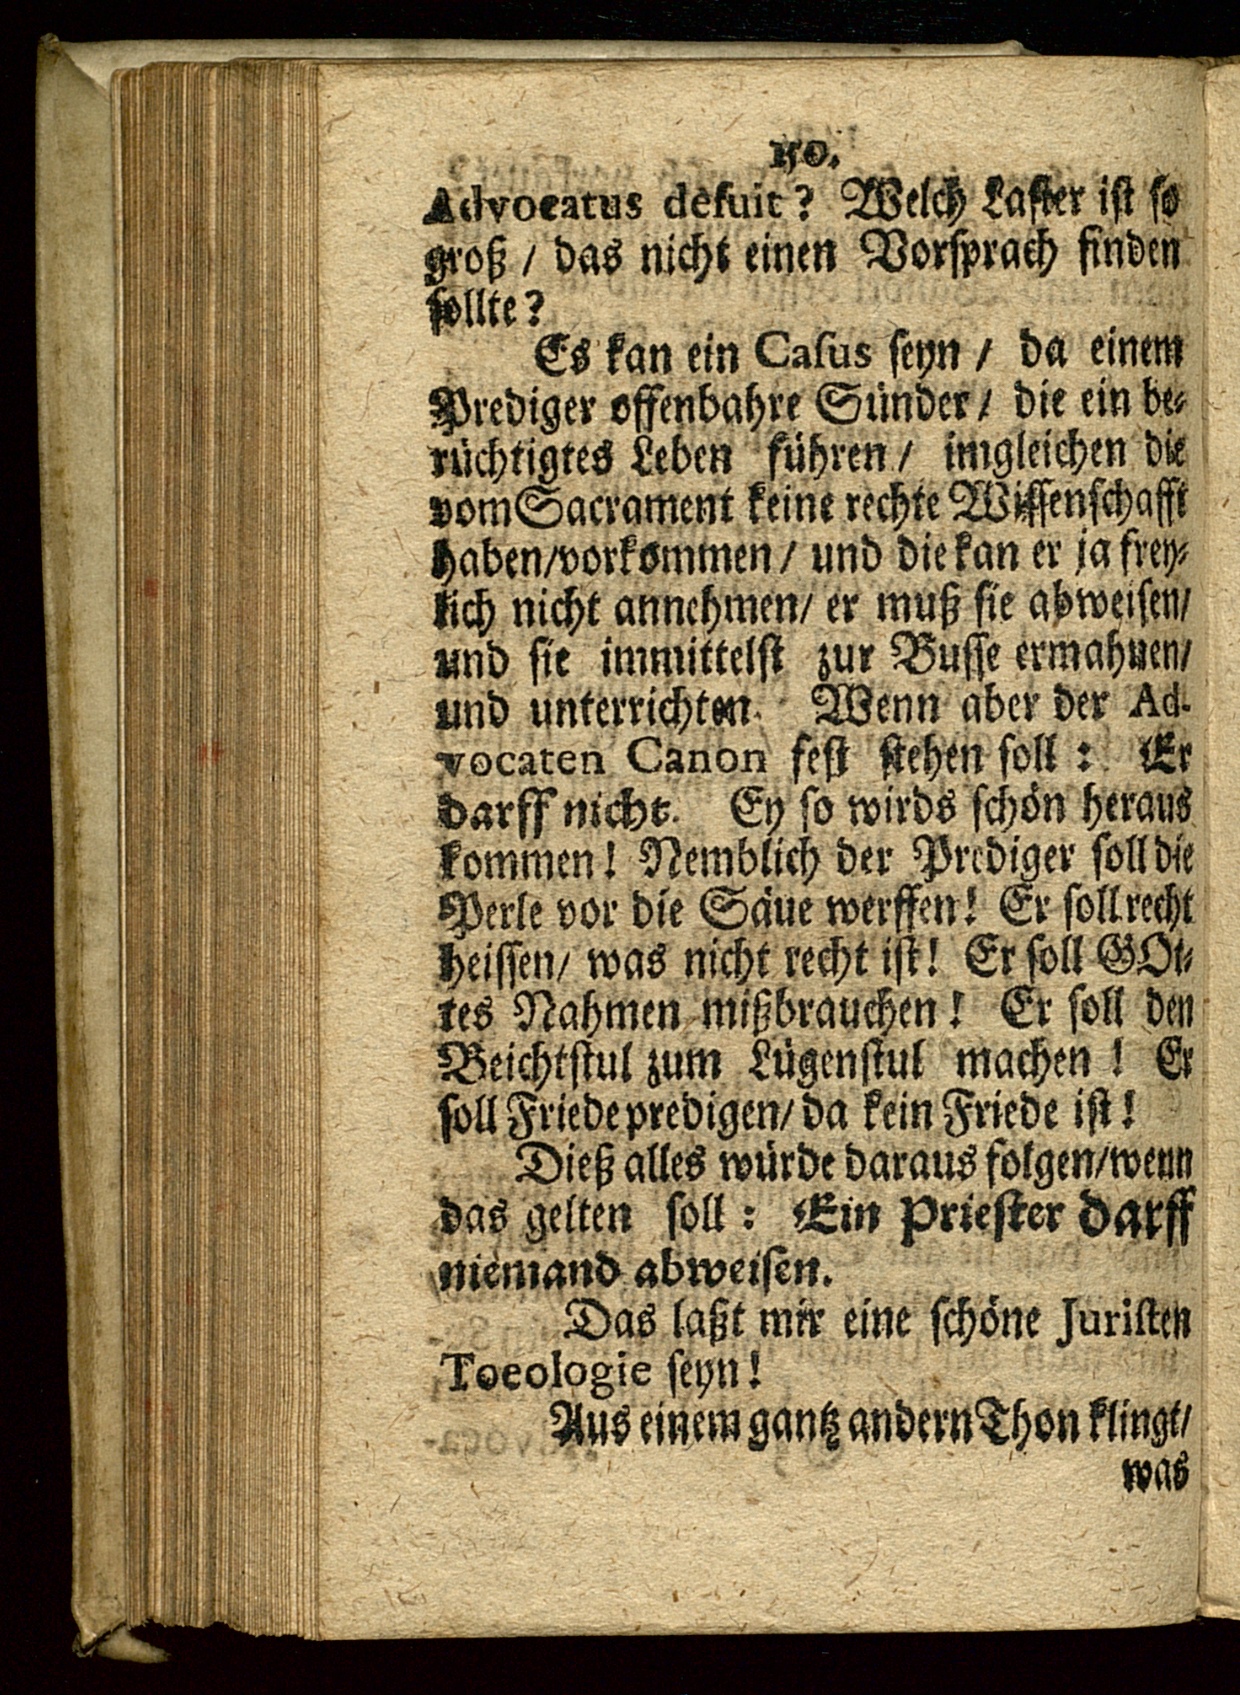 150.
Advocatus defuit? Welch Laster ist so
groß / das nicht einen Vorsprach finden
sollte?
Es kan ein Casus seyn / da einem
Prediger offenbahre Sünder / die ein be-
rüchtigtes Leben führen / imgleichen die
vom Sacrament keine rechte Wissenschafft
haben/vorkommen / und die kan er ja frey-
lich nicht annehmen/ er muß sie abweisen/
und sie immittelst zur Busse ermahnen/
und unterrichten. Wenn aber der Ad-
vocaten Canon fest stehen soll : Er
darff nicht. Ey so wirds schön heraus
kommen! Nemblich der Prediger soll die
Perle vor die Säue werffen! Er soll recht
heissen/ was nicht recht ist! Er soll GOt-
tes Nahmen mißbrauchen! Er soll den
Beichtstul zum Lügenstul machen ! Er
soll Friede predigen/ da kein Friede ist!
Dieß alles würde daraus folgen/wenn
das gelten soll : Ein Priester darff
niemand abweisen.
Das laßt mir eine schöne Juristen
Toeologie seyn!
Aus einem gantz andern Thon klingt/
was